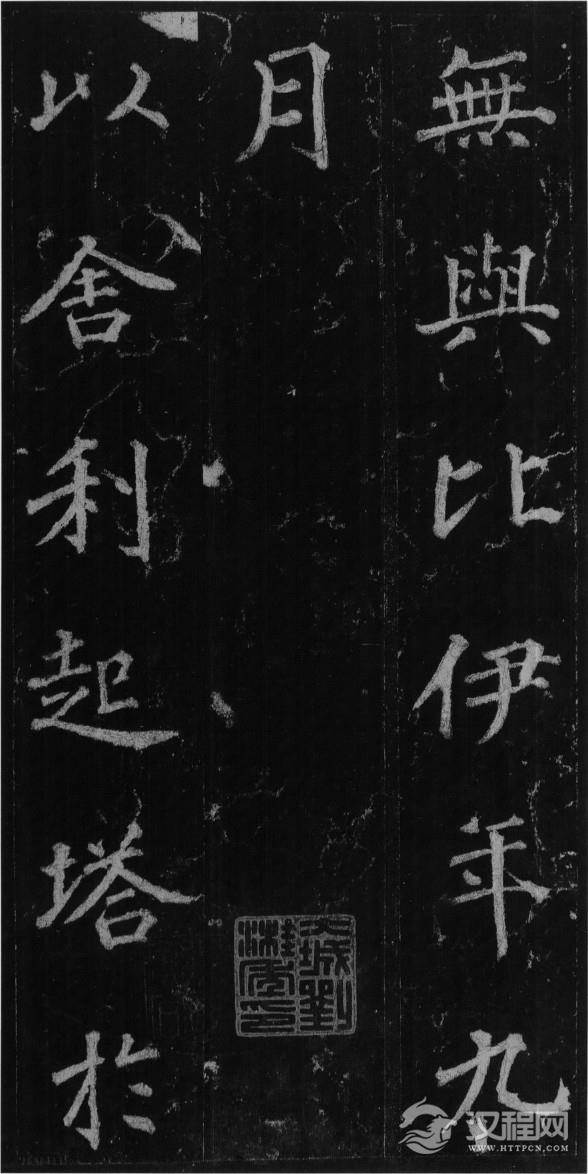 無與比伊年九
月
以舍利起塔於
汉程网
WWW.HTTPCN.COM